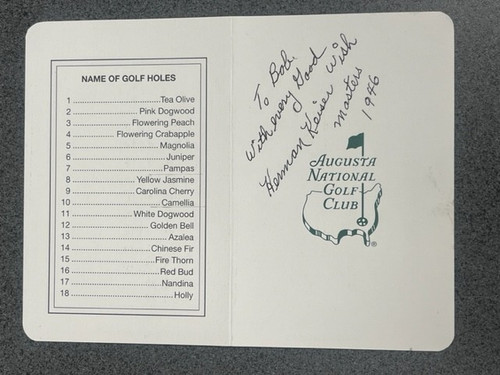 NAME OF GOLF HOLES
1 ..............................Tea Olive
2 ......................Pink Dogwood
3 ...................Flowering Peach
4 ..............Flowering Crabapple
5 ..............................Magnolia
6 .................................Juniper
7 ................................Pampas
8 ......................Yellow Jasmine
9 .....................Carolina Cherry
10 ..............................Camellia
11 .....................White Dogwood
12 .........................Golden Bell
13 ................................Azalea
14 .........................Chinese Fir
15 ...........................Fire Thorn
16 .............................Red Bud
17 ..............................Nandina
18 ...................................Holly
To Bob.
With every Good
Herman Keiser Wish
Masters
1946
AUGUSTA
NATIONAL
GOLF
CLUB
®